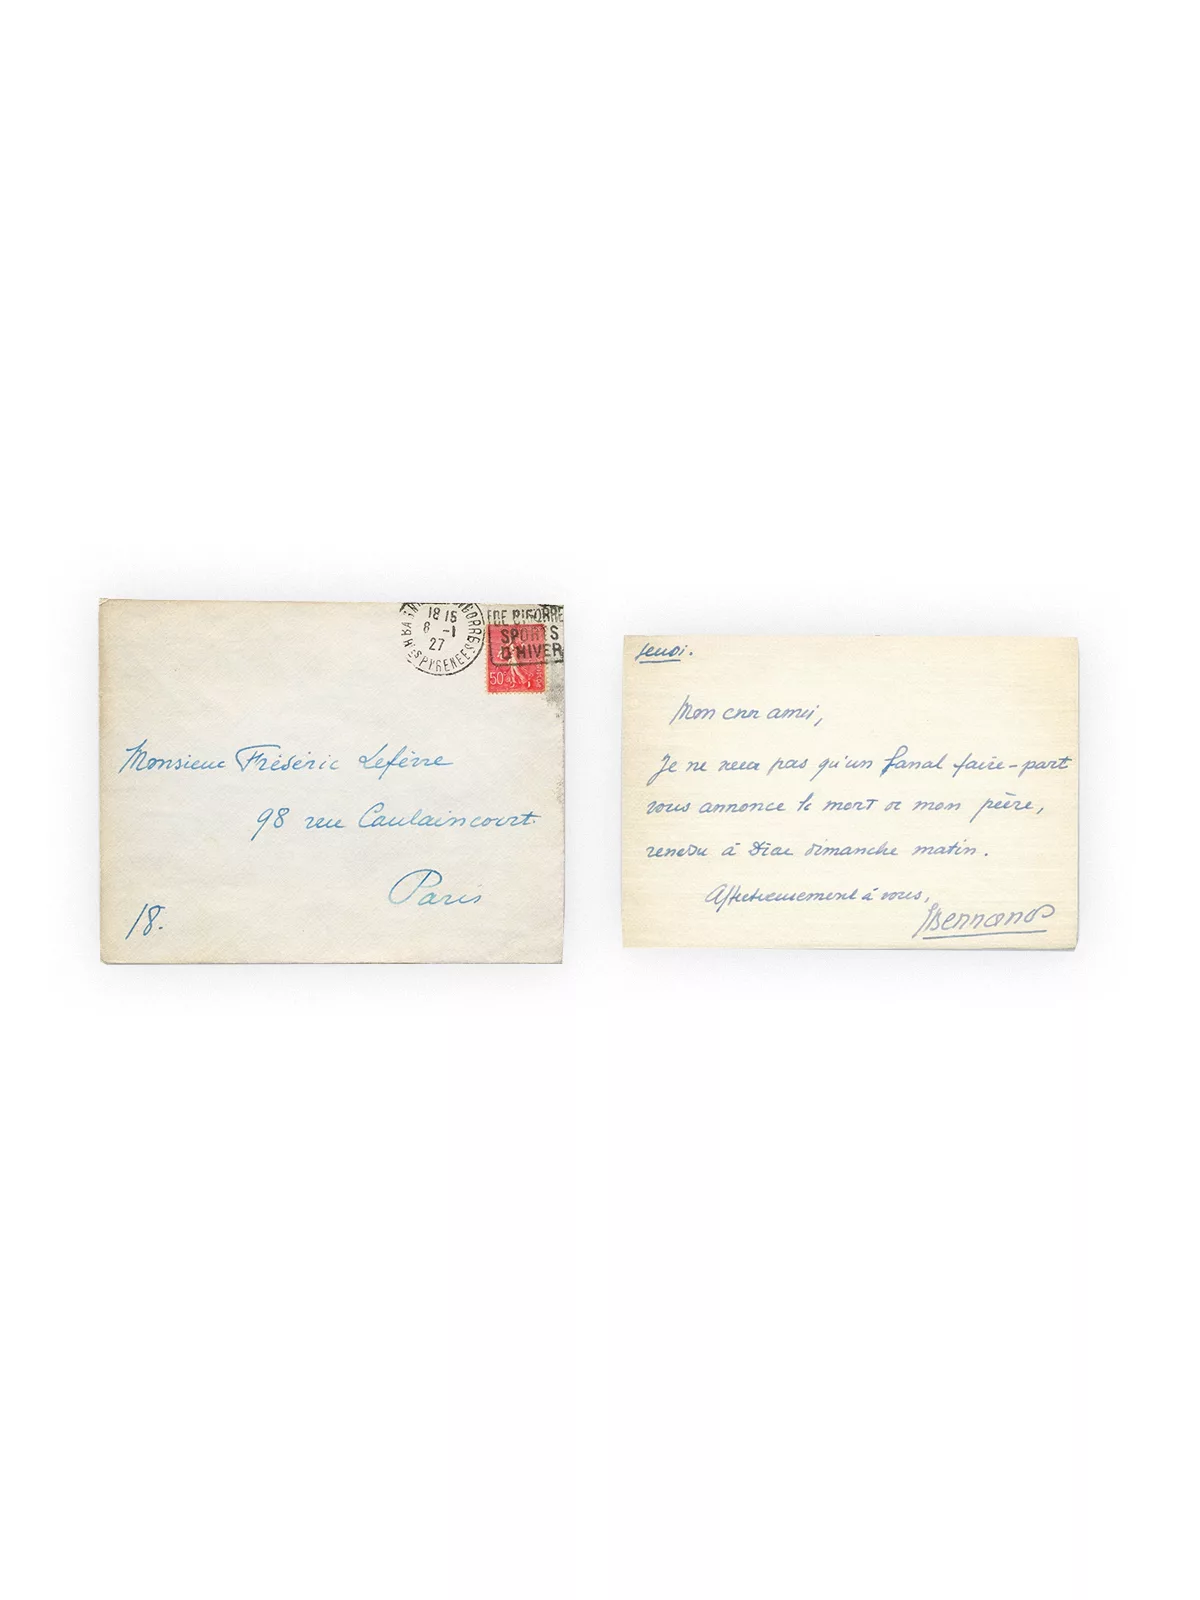 18 15
6 -1
27
H.tes PYRENEES
DE BIGORRE
SPORTS
D'HIVER
50
Monsieur Frédéric Lefèvre
98 rue Caulaincourt.
Paris
18.
Jeudi.
Mon cher ami,
Je ne veux pas qu'un banal faire-part
vous annonce la mort de mon père,
rendu à Dieu dimanche matin.
Affectueusement à vous,
GBernanos